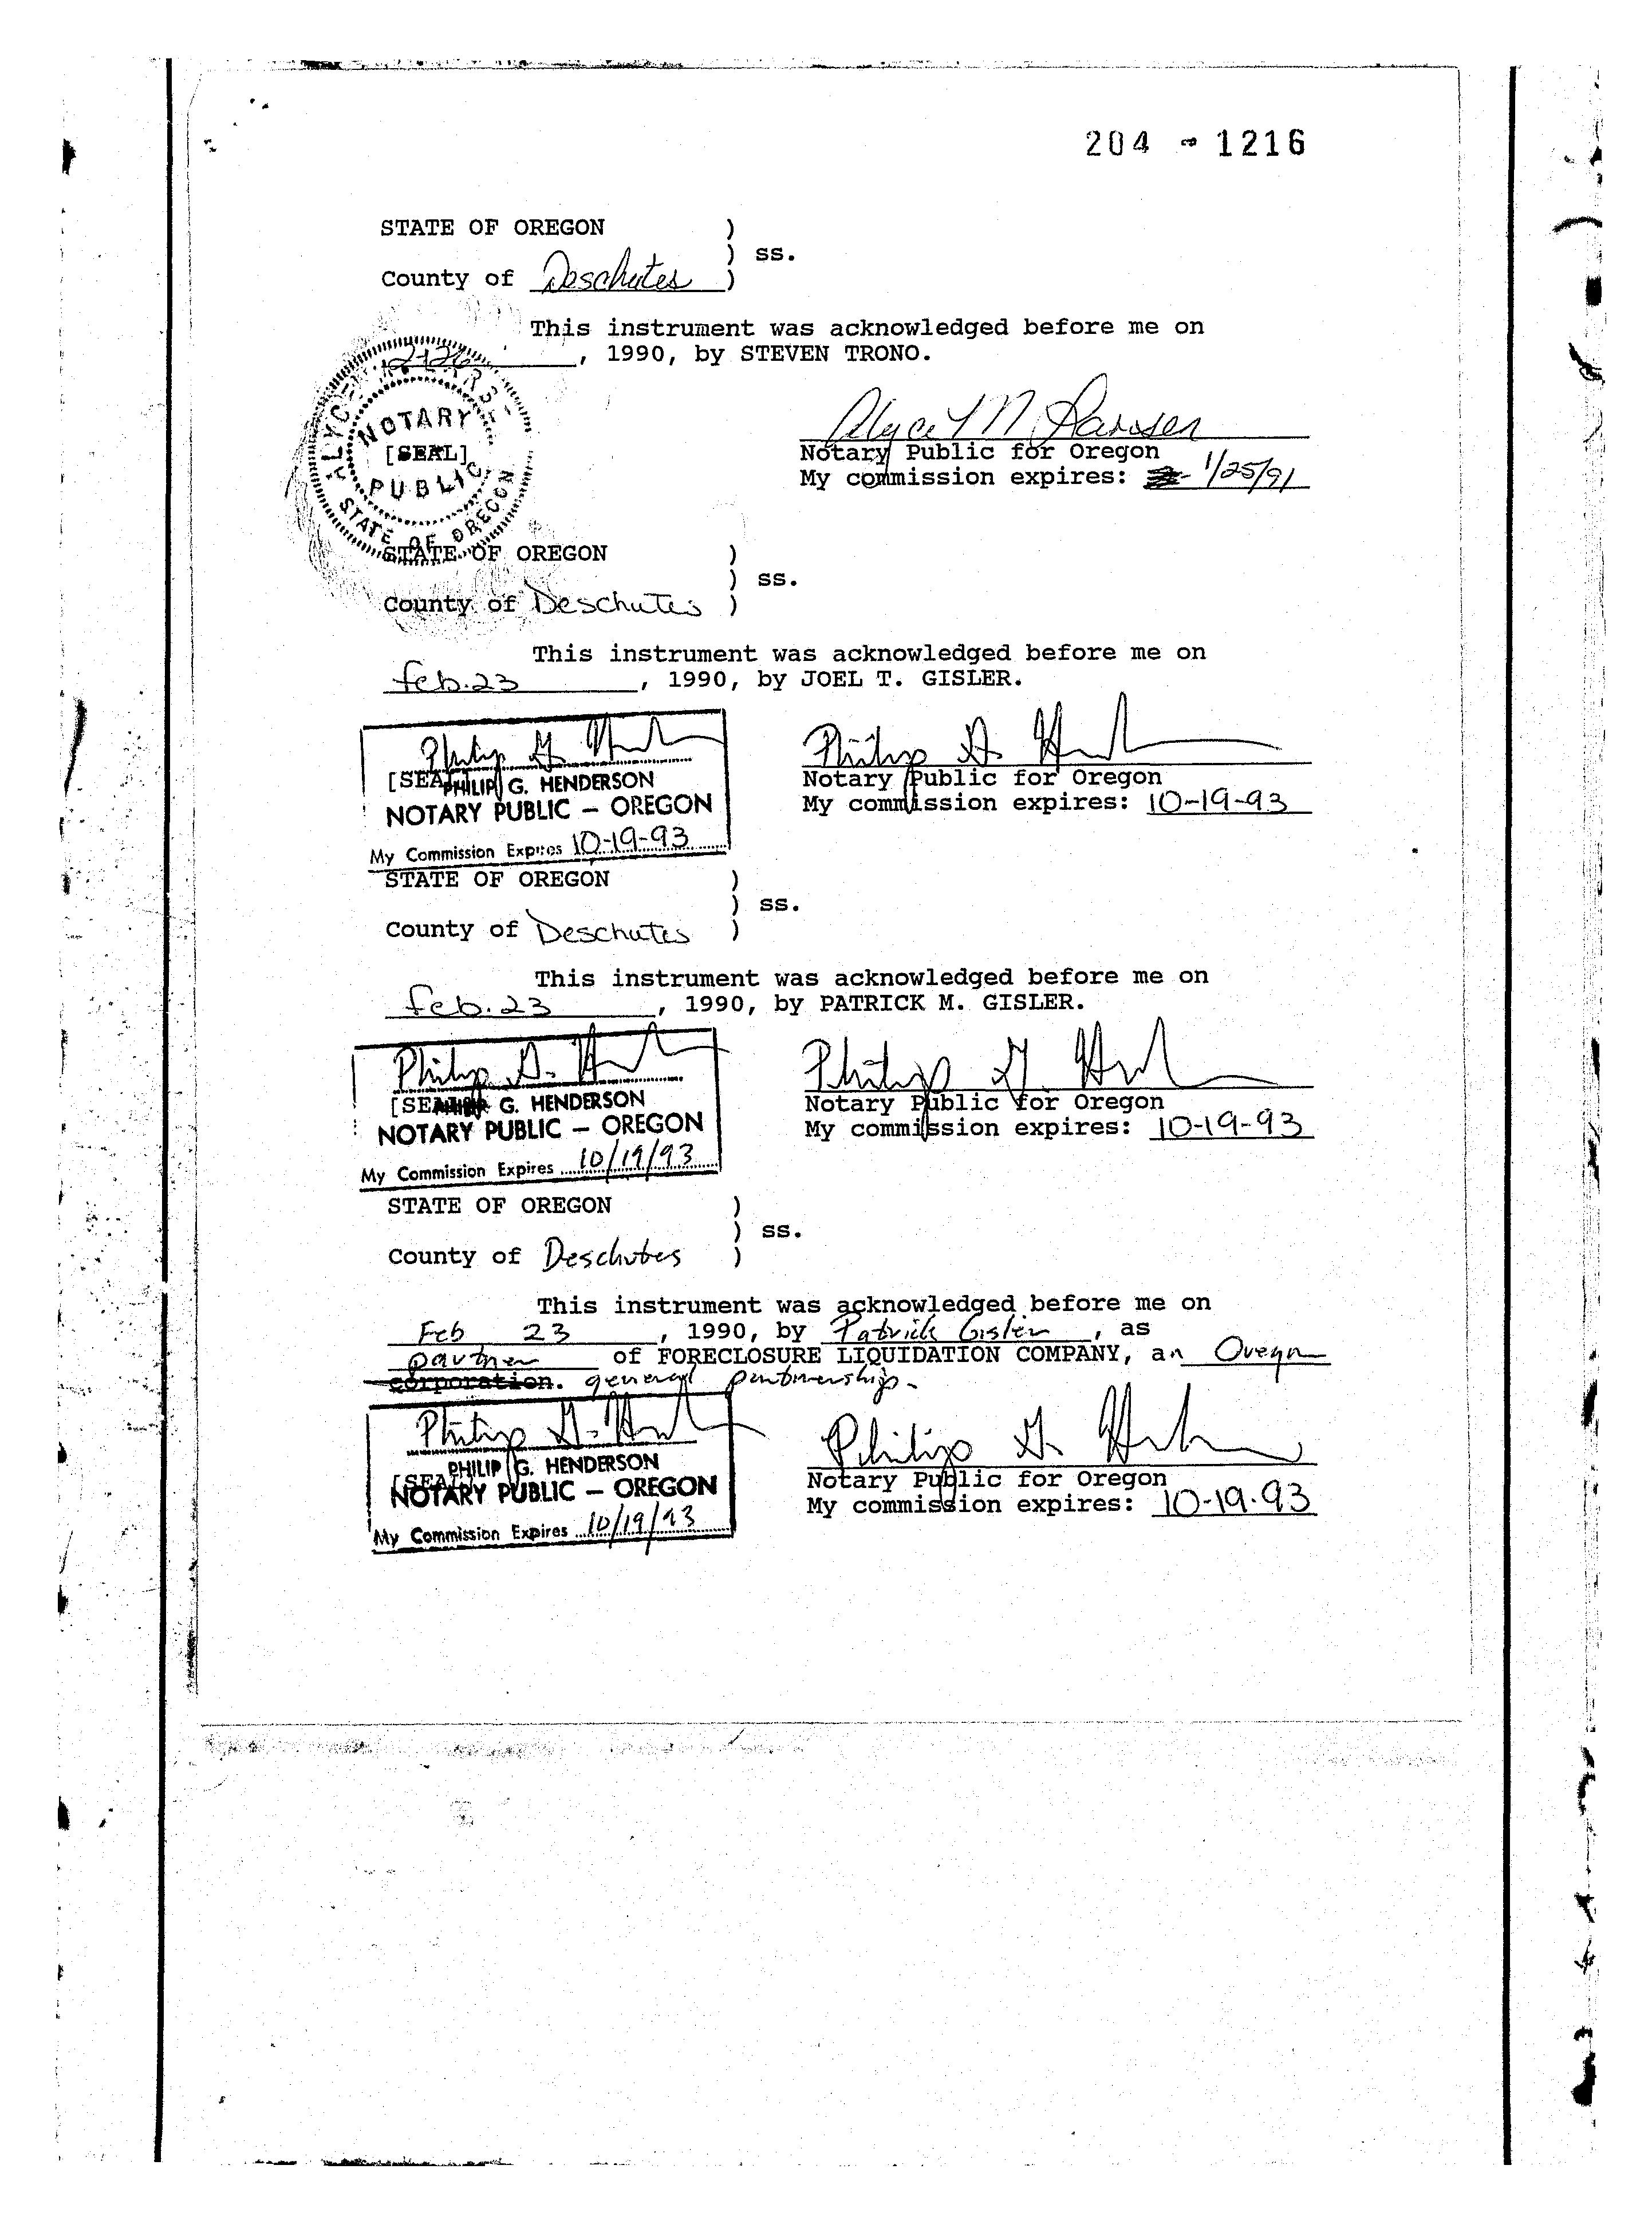 204 - 1216
STATE OF OREGON )
) ss.
County of Deschutes )
This instrument was acknowledged before me on
2-26, 1990, by STEVEN TRONO.
NOTARY
[SEAL]
PUBLIC
STATE OF OREGON
Alyce M Larsen
Notary Public for Oregon
My commission expires: 1/25/91
STATE OF OREGON )
) ss.
County of Deschutes )
This instrument was acknowledged before me on
Feb. 23, 1990, by JOEL T. GISLER.
Philip G. H
[SEAL]
PHILIP G. HENDERSON
NOTARY PUBLIC – OREGON
My Commission Expires 10-19-93
Philip G. H
Notary Public for Oregon
My commission expires: 10-19-93
STATE OF OREGON )
) ss.
County of Deschutes )
This instrument was acknowledged before me on
Feb. 23, 1990, by PATRICK M. GISLER.
Philip G. H
[SEAL] G. HENDERSON
NOTARY PUBLIC – OREGON
My Commission Expires 10/19/93
Philip G. H
Notary Public for Oregon
My commission expires: 10-19-93
STATE OF OREGON )
) ss.
County of Deschutes )
This instrument was acknowledged before me on
Feb 23, 1990, by Patrick Gisler, as
partner of FORECLOSURE LIQUIDATION COMPANY, an Oregon
corporation. general partnership.
Philip G. H
PHILIP G. HENDERSON
[SEAL]
NOTARY PUBLIC – OREGON
My Commission Expires 10/19/93
Philip G. H
Notary Public for Oregon
My commission expires: 10-19-93